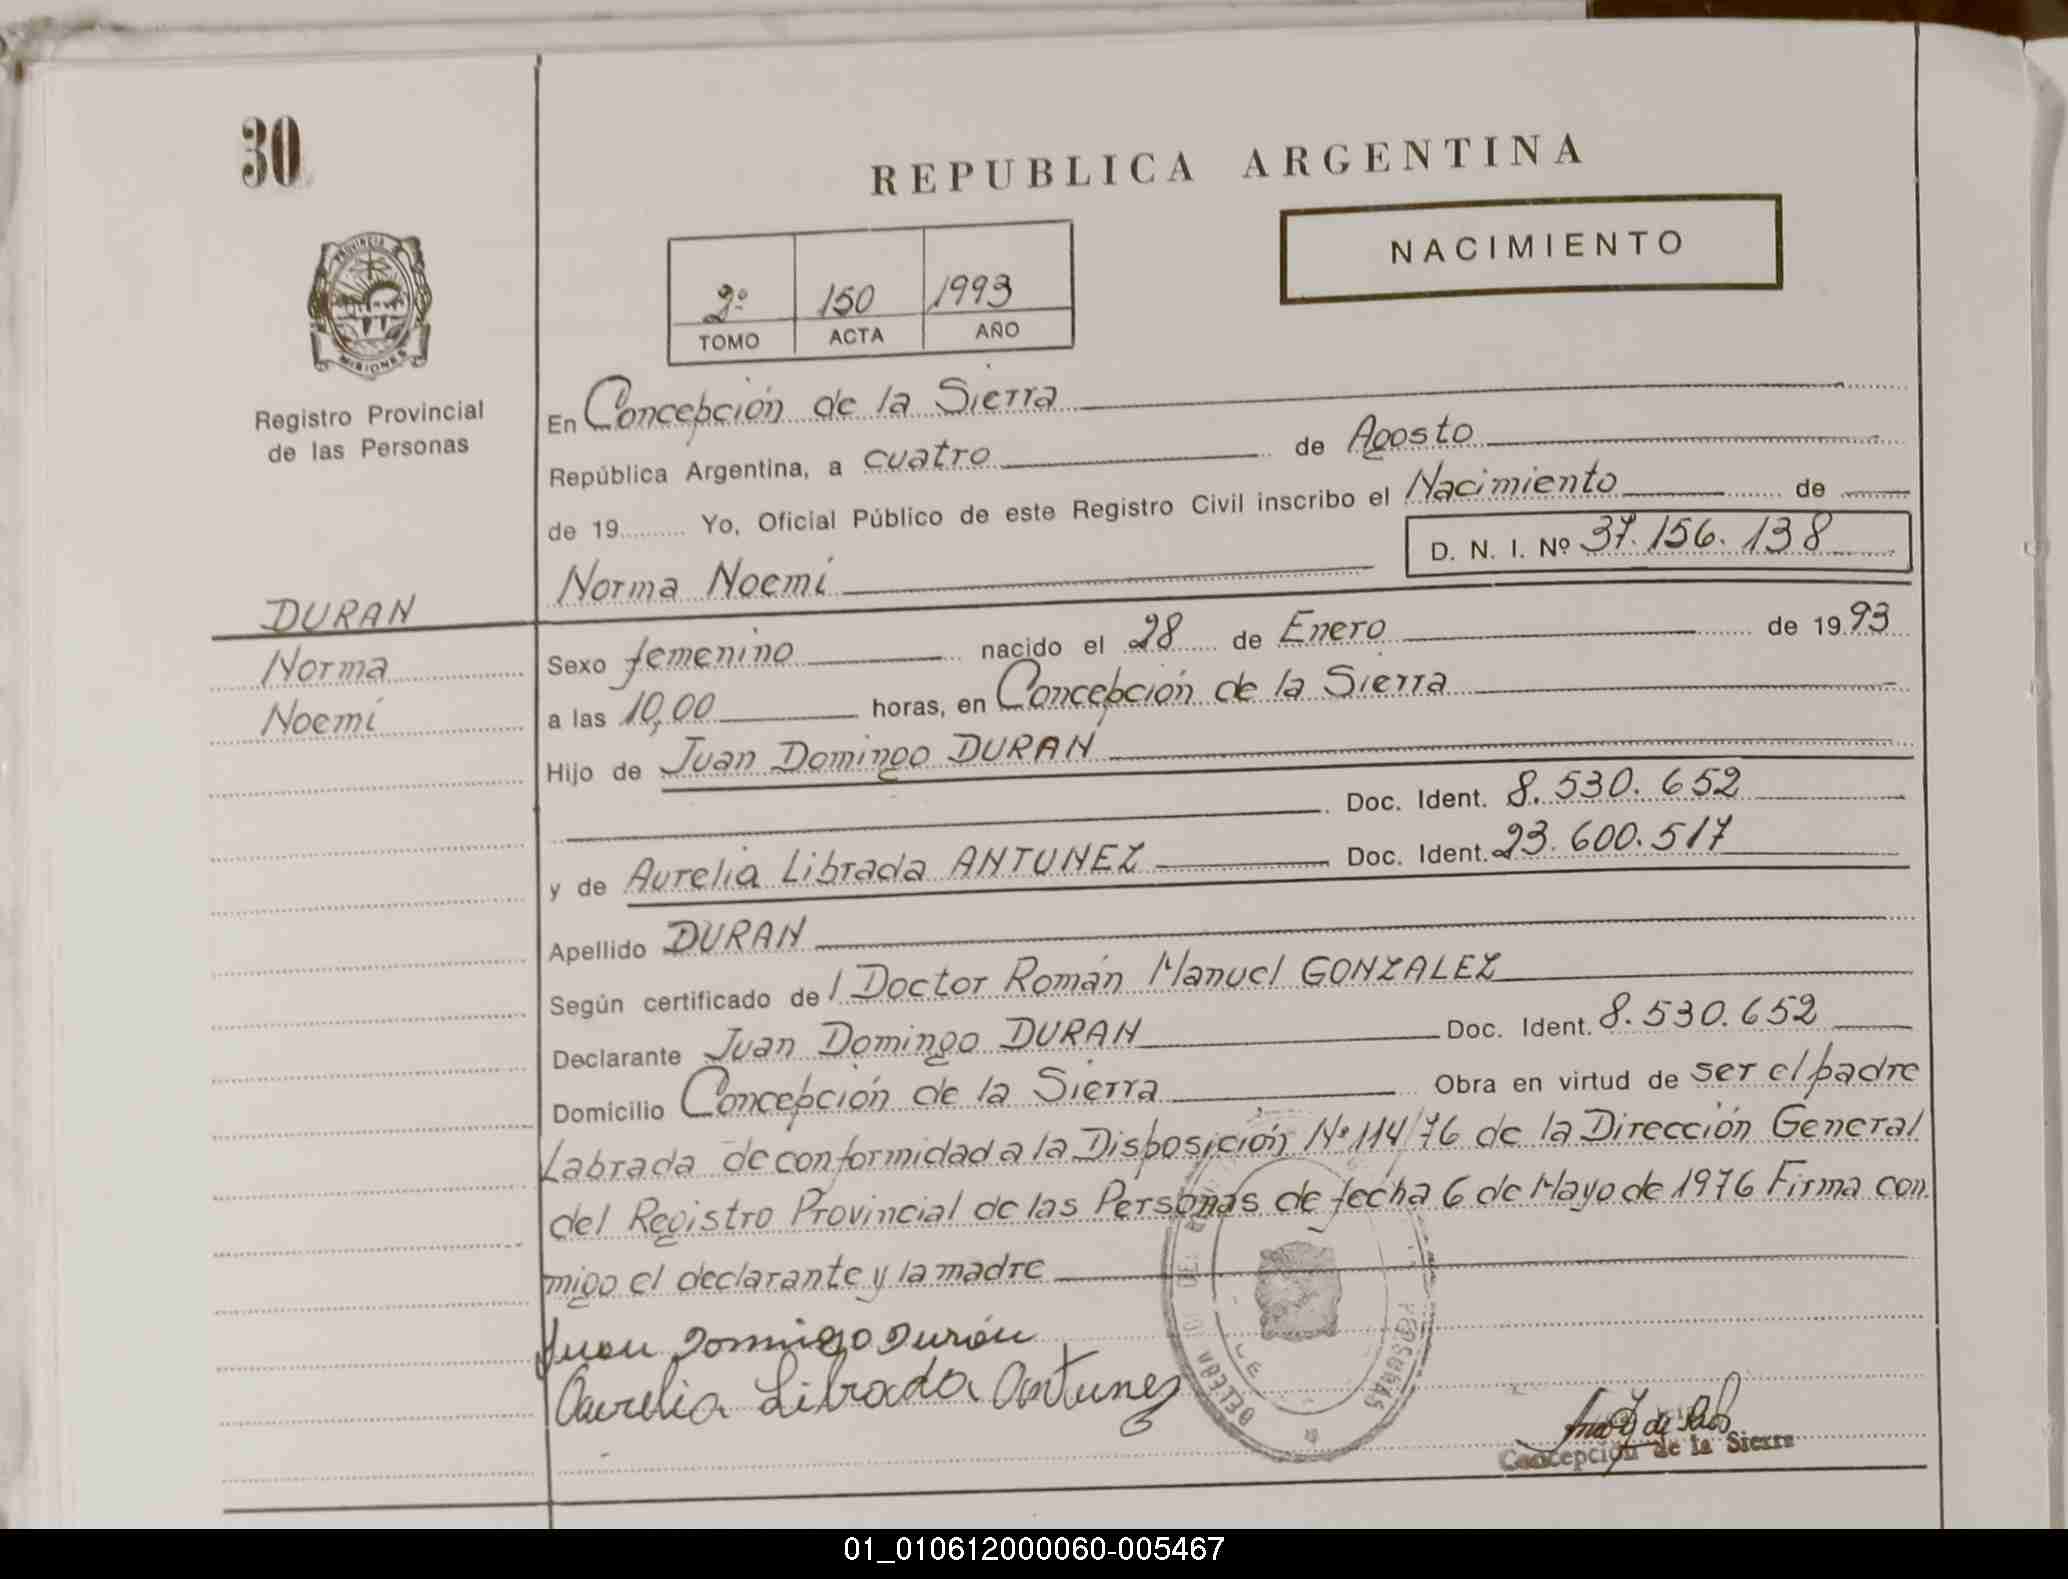 30
REPUBLICA ARGENTINA
NACIMIENTO
2º 150 1993
TOMO ACTA AÑO
PROVINCIA
MISIONES
Registro Provincial
de las Personas
En Concepción de la Sierra
República Argentina, a cuatro de Agosto
de 19 Yo, Oficial Público de este Registro Civil inscribo el Nacimiento de
D. N. I. Nº 37.156.138
Norma Noemí
DURAN
Norma
Noemí
Sexo femenino nacido el 28 de Enero de 1993
a las 10,00 horas, en Concepción de la Sierra
Hijo de Juan Domingo DURAN
Doc. Ident. 8.530.652
y de Aurelia Librada ANTUNEZ Doc. Ident. 23.600.517
Apellido DURAN
Según certificado del Doctor Román Manuel GONZALEZ
Declarante Juan Domingo DURAN Doc. Ident. 8.530.652
Domicilio Concepción de la Sierra Obra en virtud de ser el padre
Labrada de conformidad a la Disposición Nº 114/76 de la Dirección General
del Registro Provincial de las Personas de fecha 6 de Mayo de 1976 Firma con
migo el declarante y la madre
Juan Domingo Durán
Aurelia Librada Antunez
Concepción de la Sierra
01_010612000060-005467